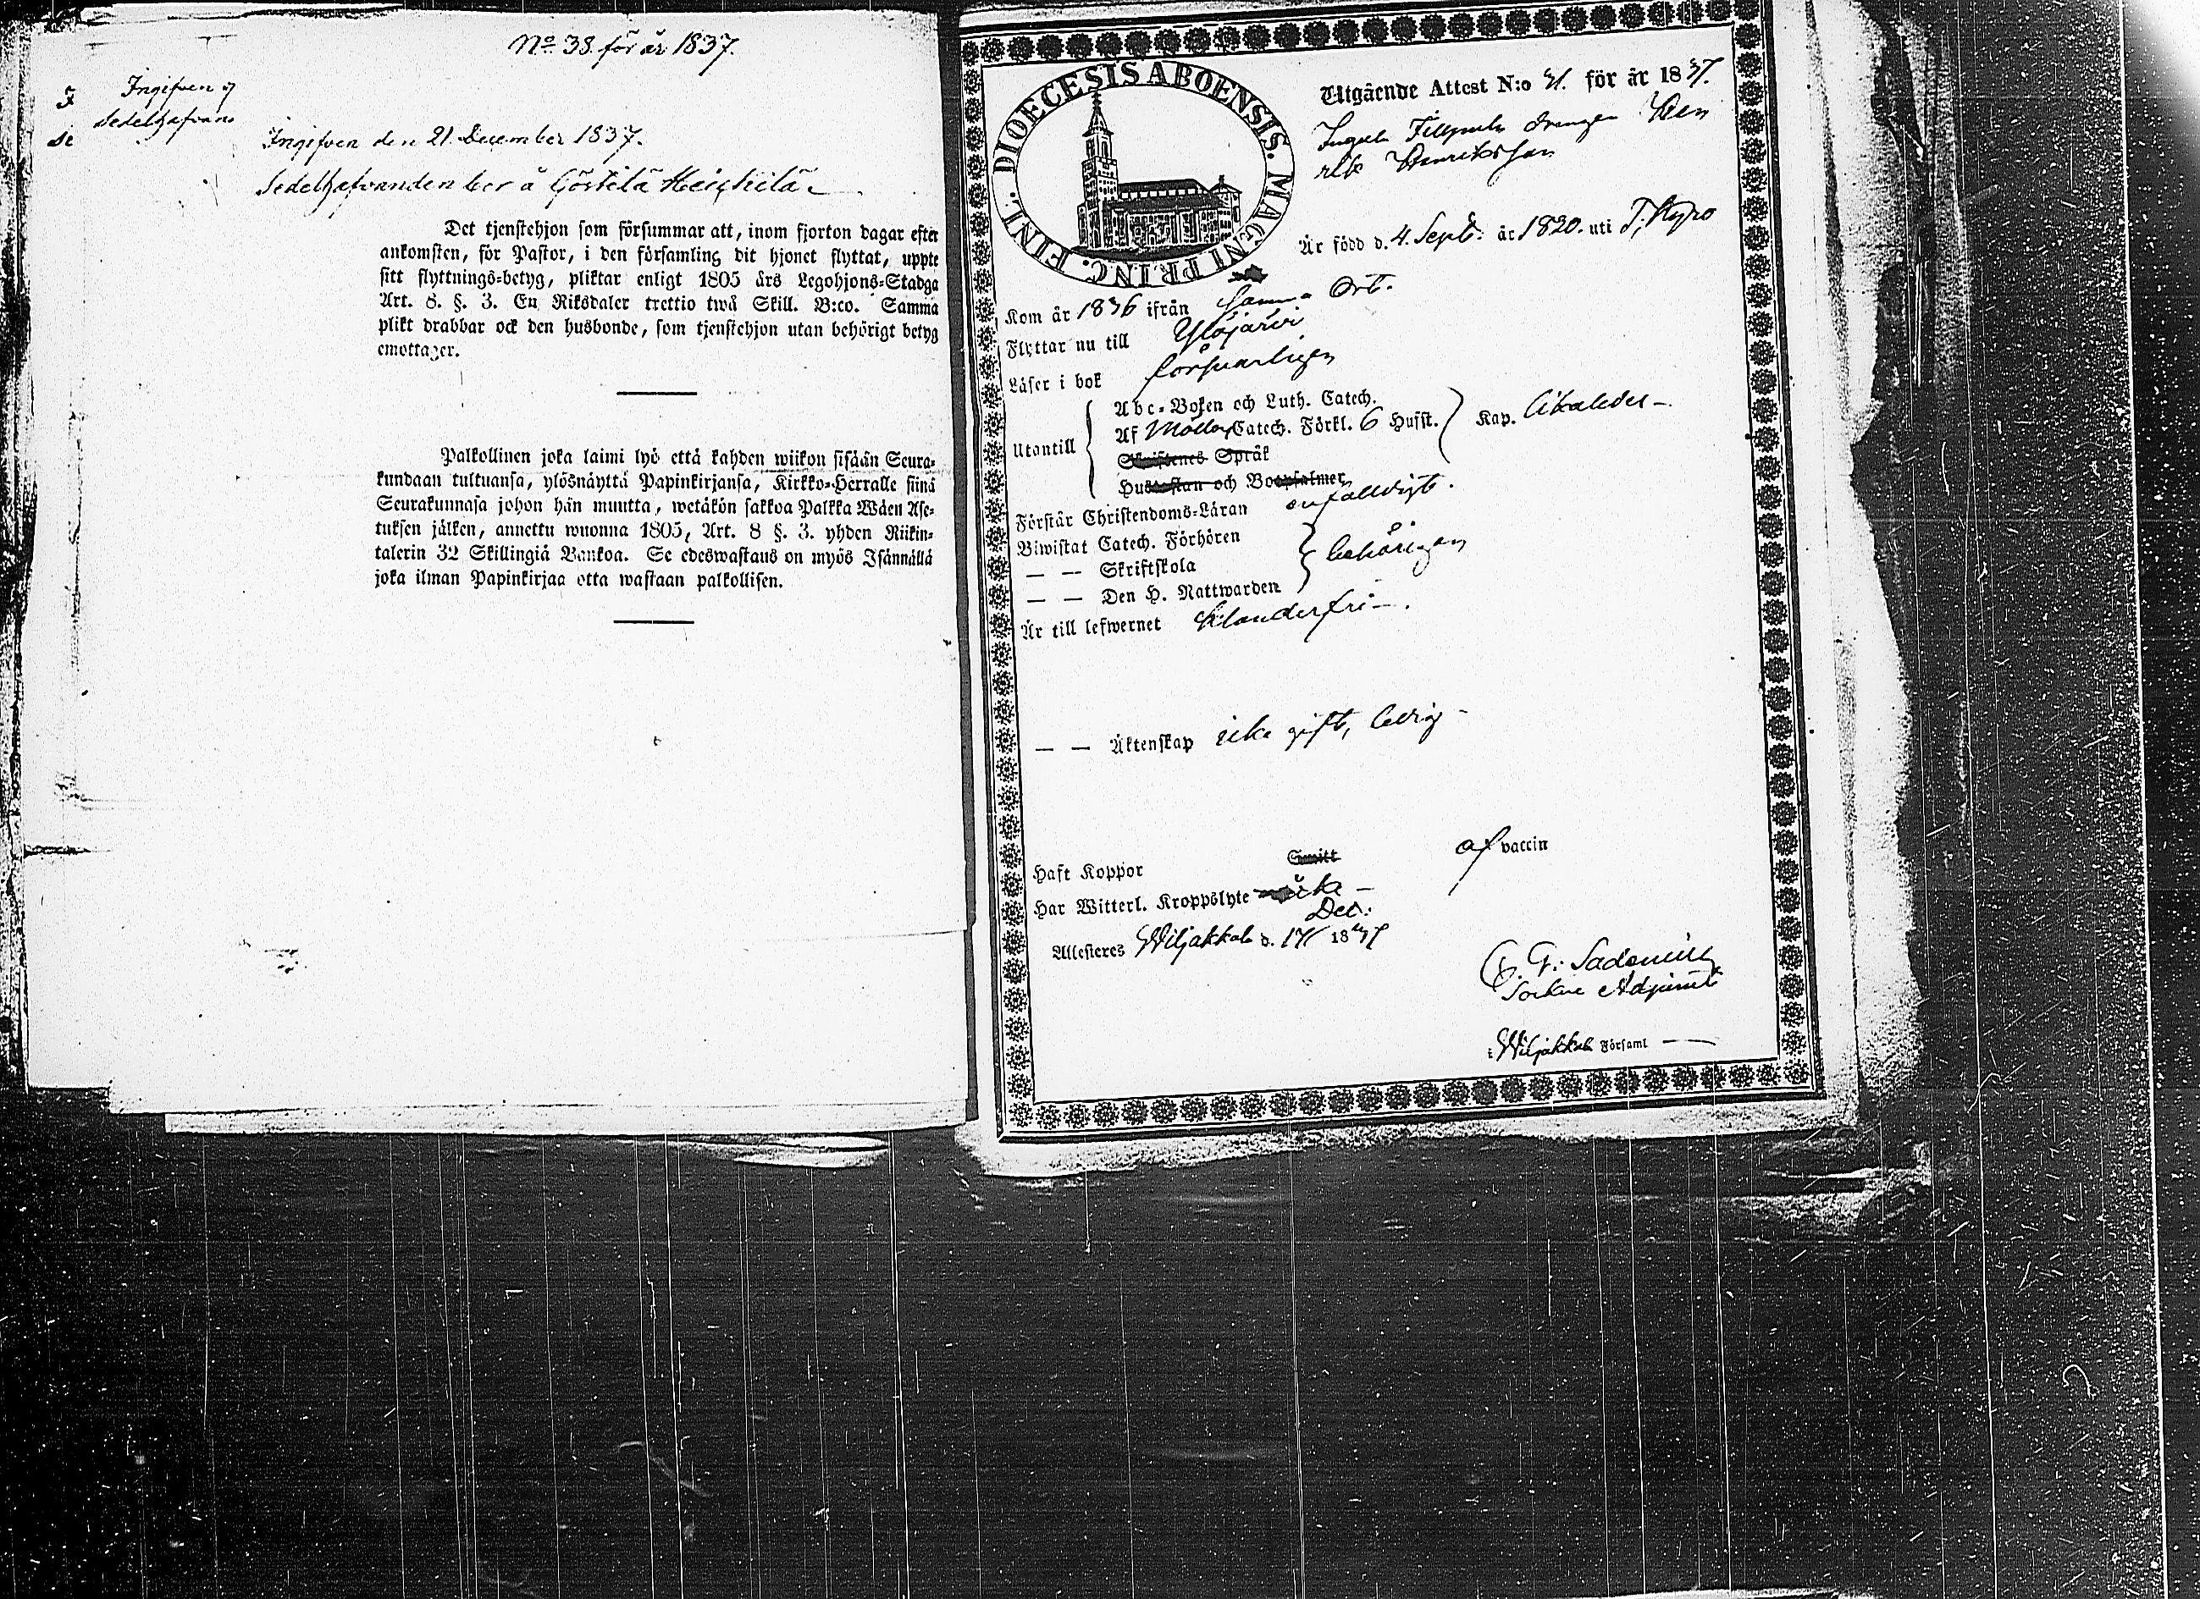 No 38 för år 1837.
Ingifven
Sedelhafvan
Ingifven den 21 December 1837.
Sedelhafvanden bor å Göstilä Heickilä
Det tjenstehjon som försummar att, inom fjorton dagar efter
ankomsten, för Pastor, i den församling dit hjonet flyttat, uppte
sitt flyttnings-betyg, pliktar enligt 1805 års Legohjons-Stadga
Art. 8. §. 3. En Riksdaler trettio twå Skill. B:co. Samma
plikt drabbar ock den husbonde, som tjenstehjon utan behörigt betyg
emottager.
Palkollinen joka laimi lyö että kahden wiikon sisään Seura-
kundaan tultuansa, ylösnäyttä Papinkirjansa, Kirkko-Herralle siinä
Seurakunnasa johon hän muutta, wetäkön sakkoa Palkka Wäen Ase-
tuksen jälken, annettu wuonna 1805, Art. 8 §. 3. yhden Riikin-
talerin 32 Skillingiä Bankoa. Se edeswastaus on myös Isännällä
joka ilman Papinkirjaa otta wastaan palkollisen.
DIOECESIS ABOENSIS. MAGNI PRINC. FINL.
Utgående Attest N:o 41. för år 1837.
drängen Hen
rik Henriksson
Är född d. 4. Sept: år 1820. uti T. Kyro
Kom år 1836 ifrån samma Ort.
Flyttar nu till Ylöjärvi
Läser i bok försvarligen
Abc-Boken och Luth. Catech.
Utantill Af Möllers Catech. Förkl. 6 Hufst. Kap.
Skriftenes Språk
Hustaflan och Botpsalmer
Förstår Christendoms-Läran enfälldigt.
Biwistat Catech. Förhören
— — Skriftskola behörigen
— — Den H. Nattwarden
Är till lefwernet klanderfri —.
— — Äktenskap icke gift, ledig —
Haft Koppor Smitt af vaccin
Har Witterl. Kroppslyte icke —
Attesteres Wiljakkala d. 17 Dec: 1837
Sacknen Adjunct
i Wiljakkala Församl —